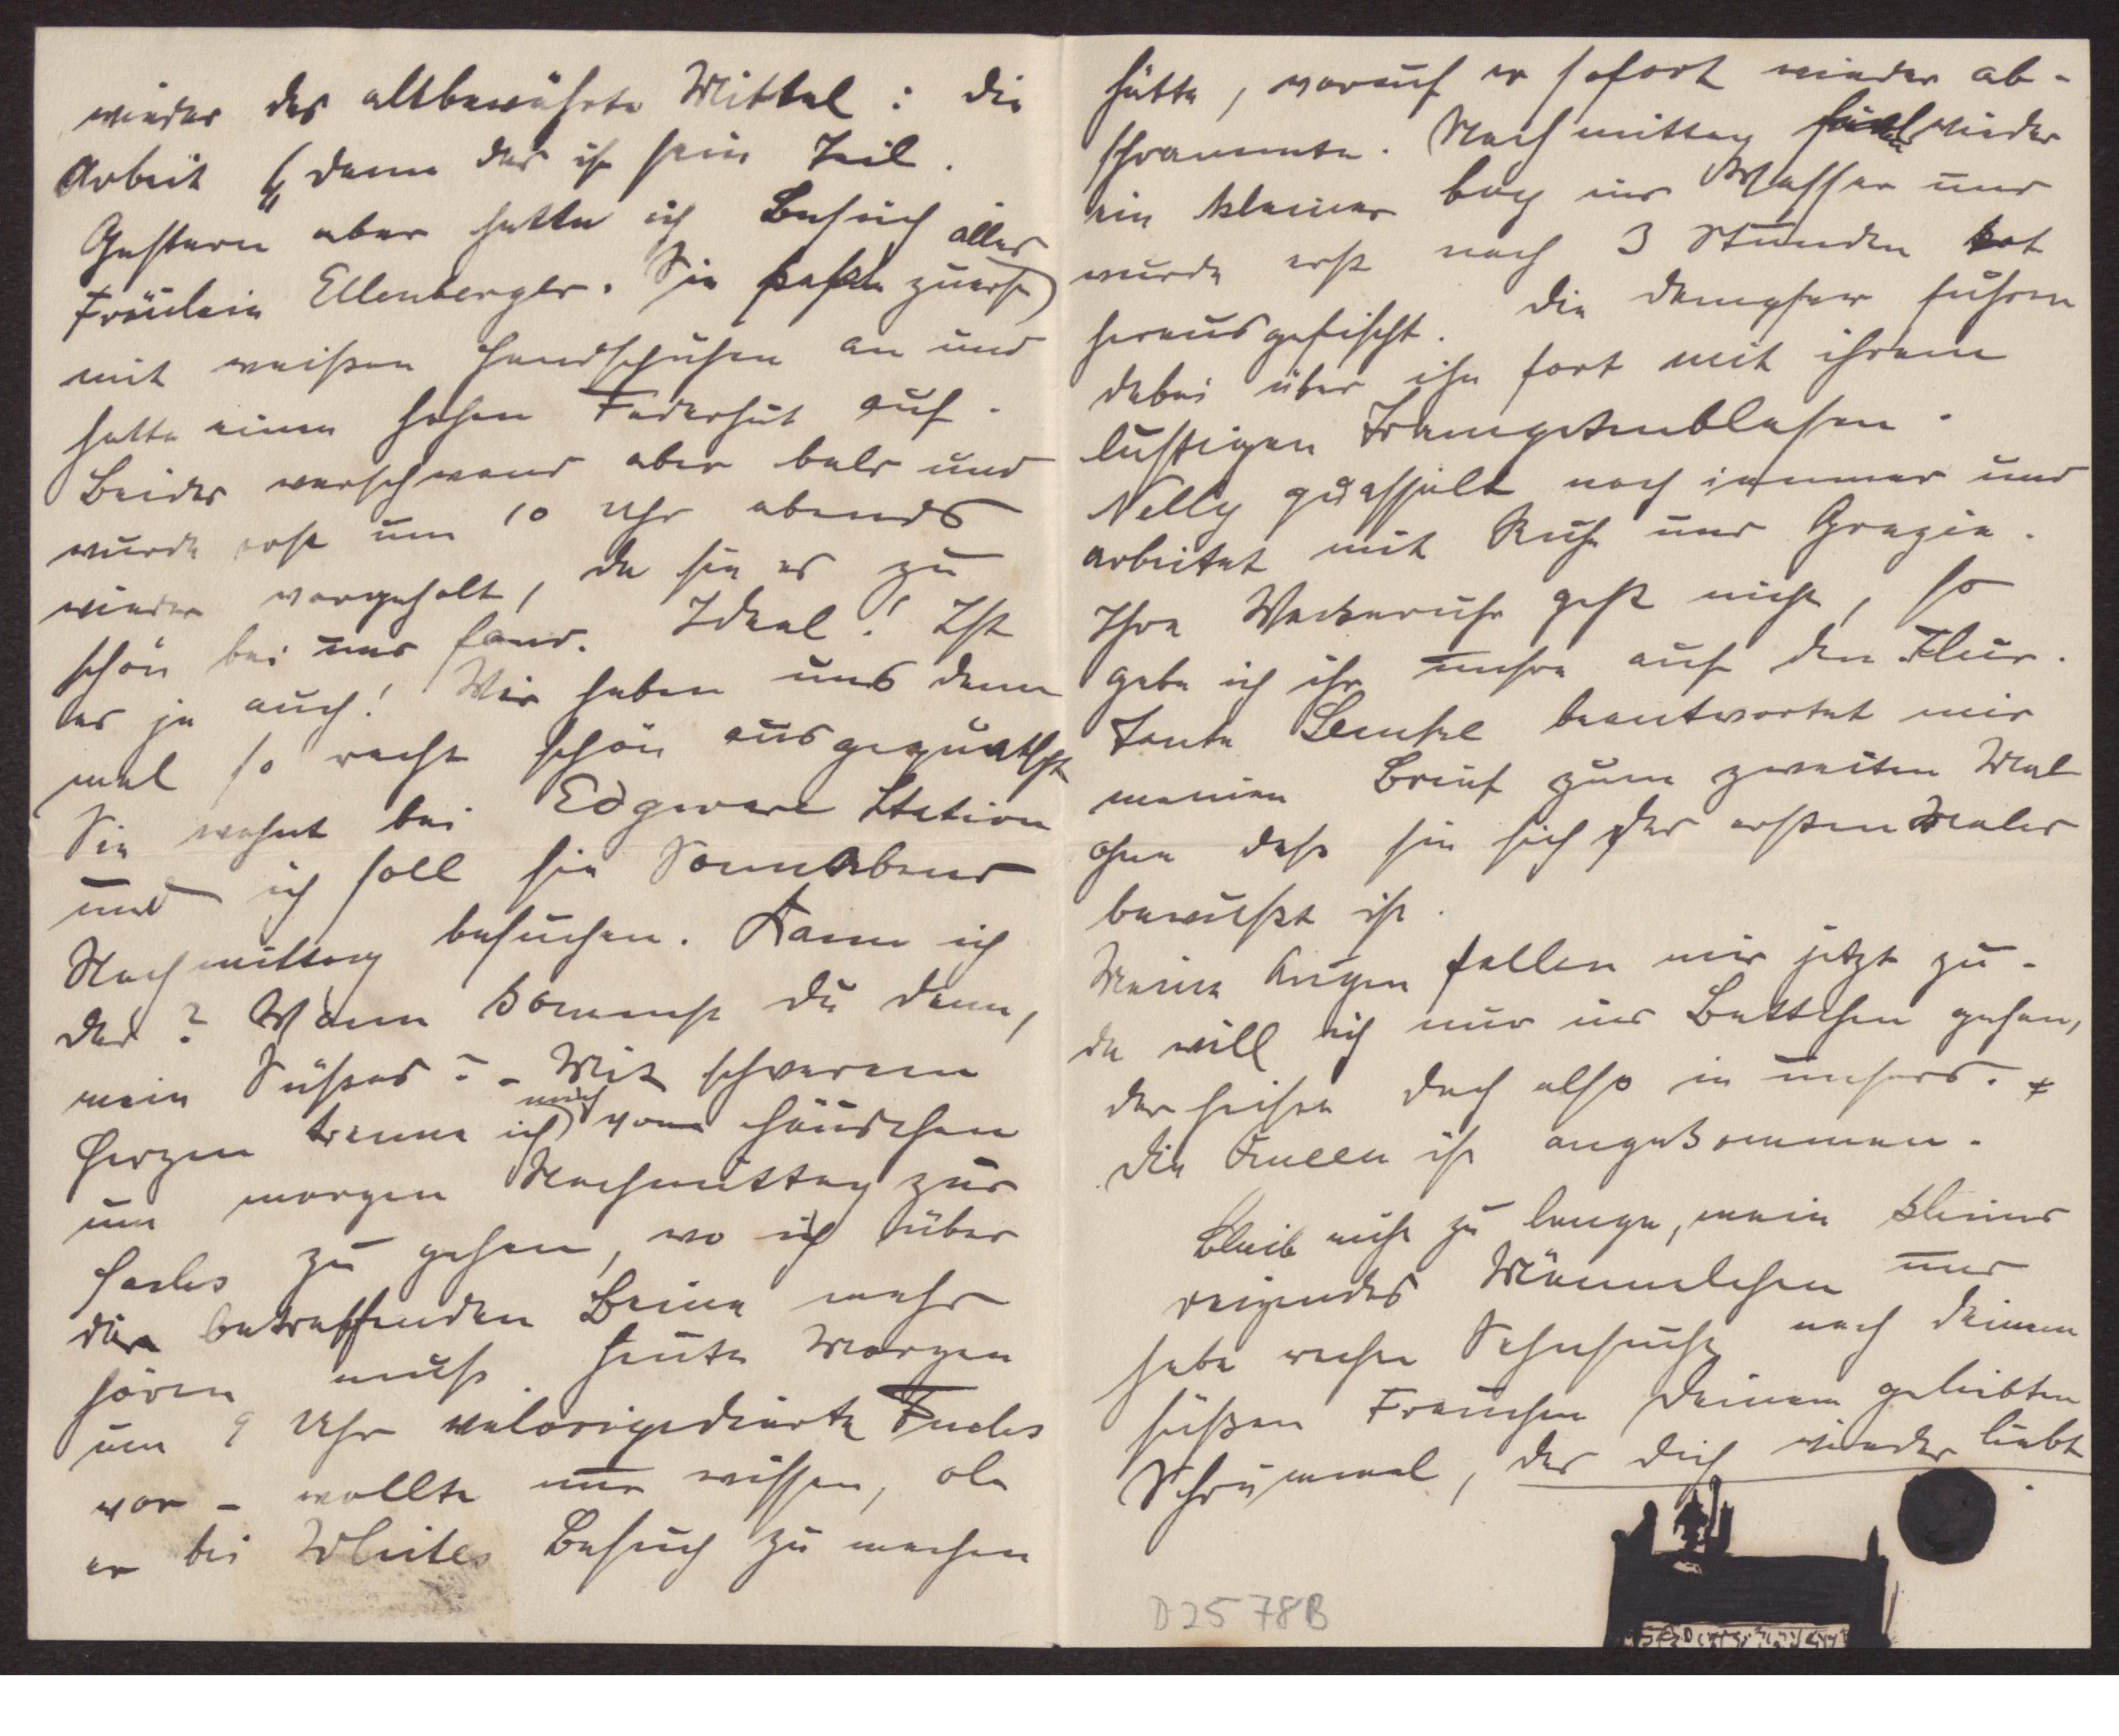 wieder das altbewährte Mittel: die
Arbeit, denn das ist sein Teil.
Gestern aber hatte ich Besuch alles
Fräulein Ellenberger. Sie faßte zuerst
mit weißen Handschuhen an und
hatte einen hohen Federhut auf.
Beides verschwand aber bald und
wurde erst um 10 Uhr abends
wieder vorgeholt, da sie es zu
schön bei uns fand. Ideal! Ist
es ja auch! Wir haben uns denn
mal so recht schön ausgequatscht
Sie wohnt bei Edgware Station
und ich soll sie Sonnabend
Nachmittag besuchen. Kann ich
das? Wann kommst du denn,
mein Süßes? – Mit schwerem
Herzen trenne ich mich vom Häuschen
um morgen Nachmittag zur
Sachs zu gehen, wo ich über
die betreffenden Beine mehr
hören muß. Heute Morgen
um 9 Uhr velozipedierte Fuchs
vor – wollte nur wissen, ob
er bei Whites Besuch zu machen
hätte, worauf er sofort wieder ab-
schrammte. Nachmittag fiel wieder
ein kleiner boy ins Wasser und
wurde erst nach 3 Stunden tot
herausgefischt. Die Dampfer fuhren
dabei über ihn fort mit ihrem
lustigen Trompetenblasen.
Nelly quasselt noch immer und
arbeitet mit Ruhe und Grazie.
Ihre Weckeruhr geht nicht, so
gebe ich ihr unsre auf den Flur.
Tante beantwortet mir
meinen Brief zum zweiten Mal
ohne daß sie sich des ersten Males
bewußt ist.
Meine Augen fallen mir jetzt zu.
da will ich nur ins Bettchen gehen,
das heißen doch also in unsers. +
Die Queen ist angekommen.
Bleib nicht zu lange, mein kleines
reizendes Männelchen und
habe rechte Sehnsucht nach deinem
süßen Frauchen Deinem geliebten
Schrummel, das dich wieder liebt.
D2578B